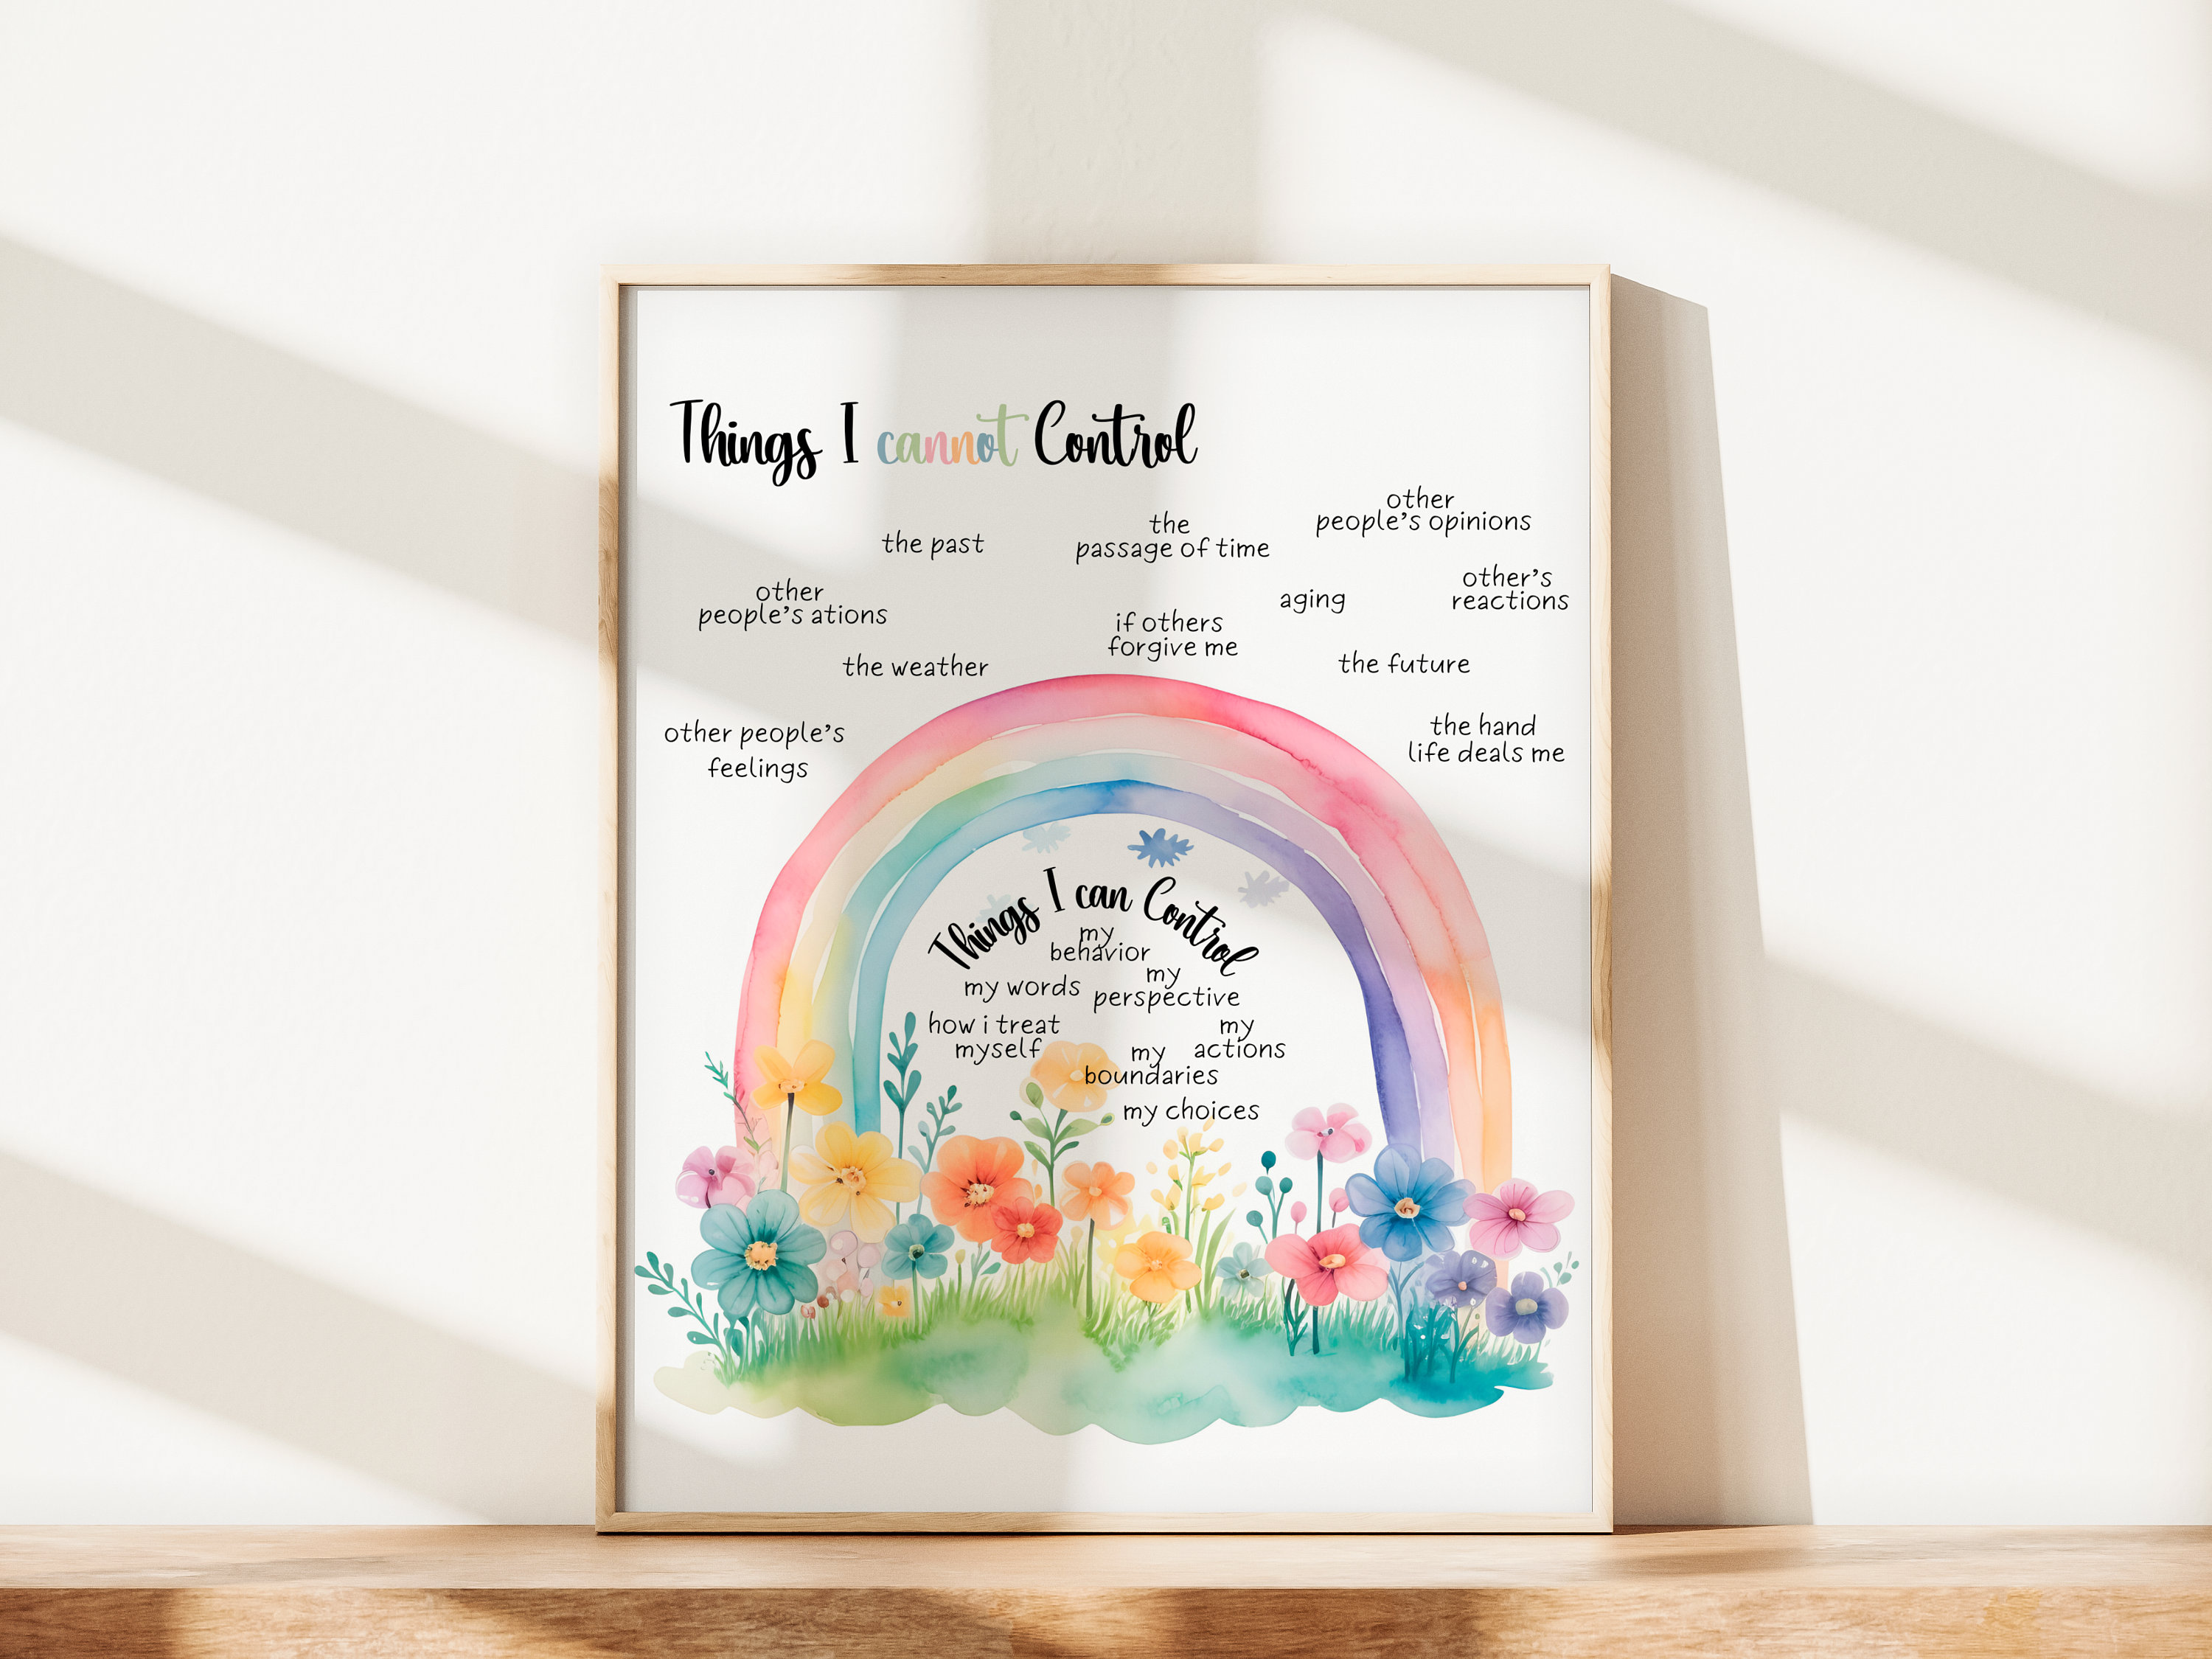 Things I cannot Control
other
people's opinions
the
passage of time
the past
other's
reactions
other
people's ations
aging
if others
forgive me
the weather
the future
other people's
feelings
the hand
life deals me
Things I can Control
my
behavior
my words
my
perspective
how i treat
myself
my
actions
my
boundaries
my choices